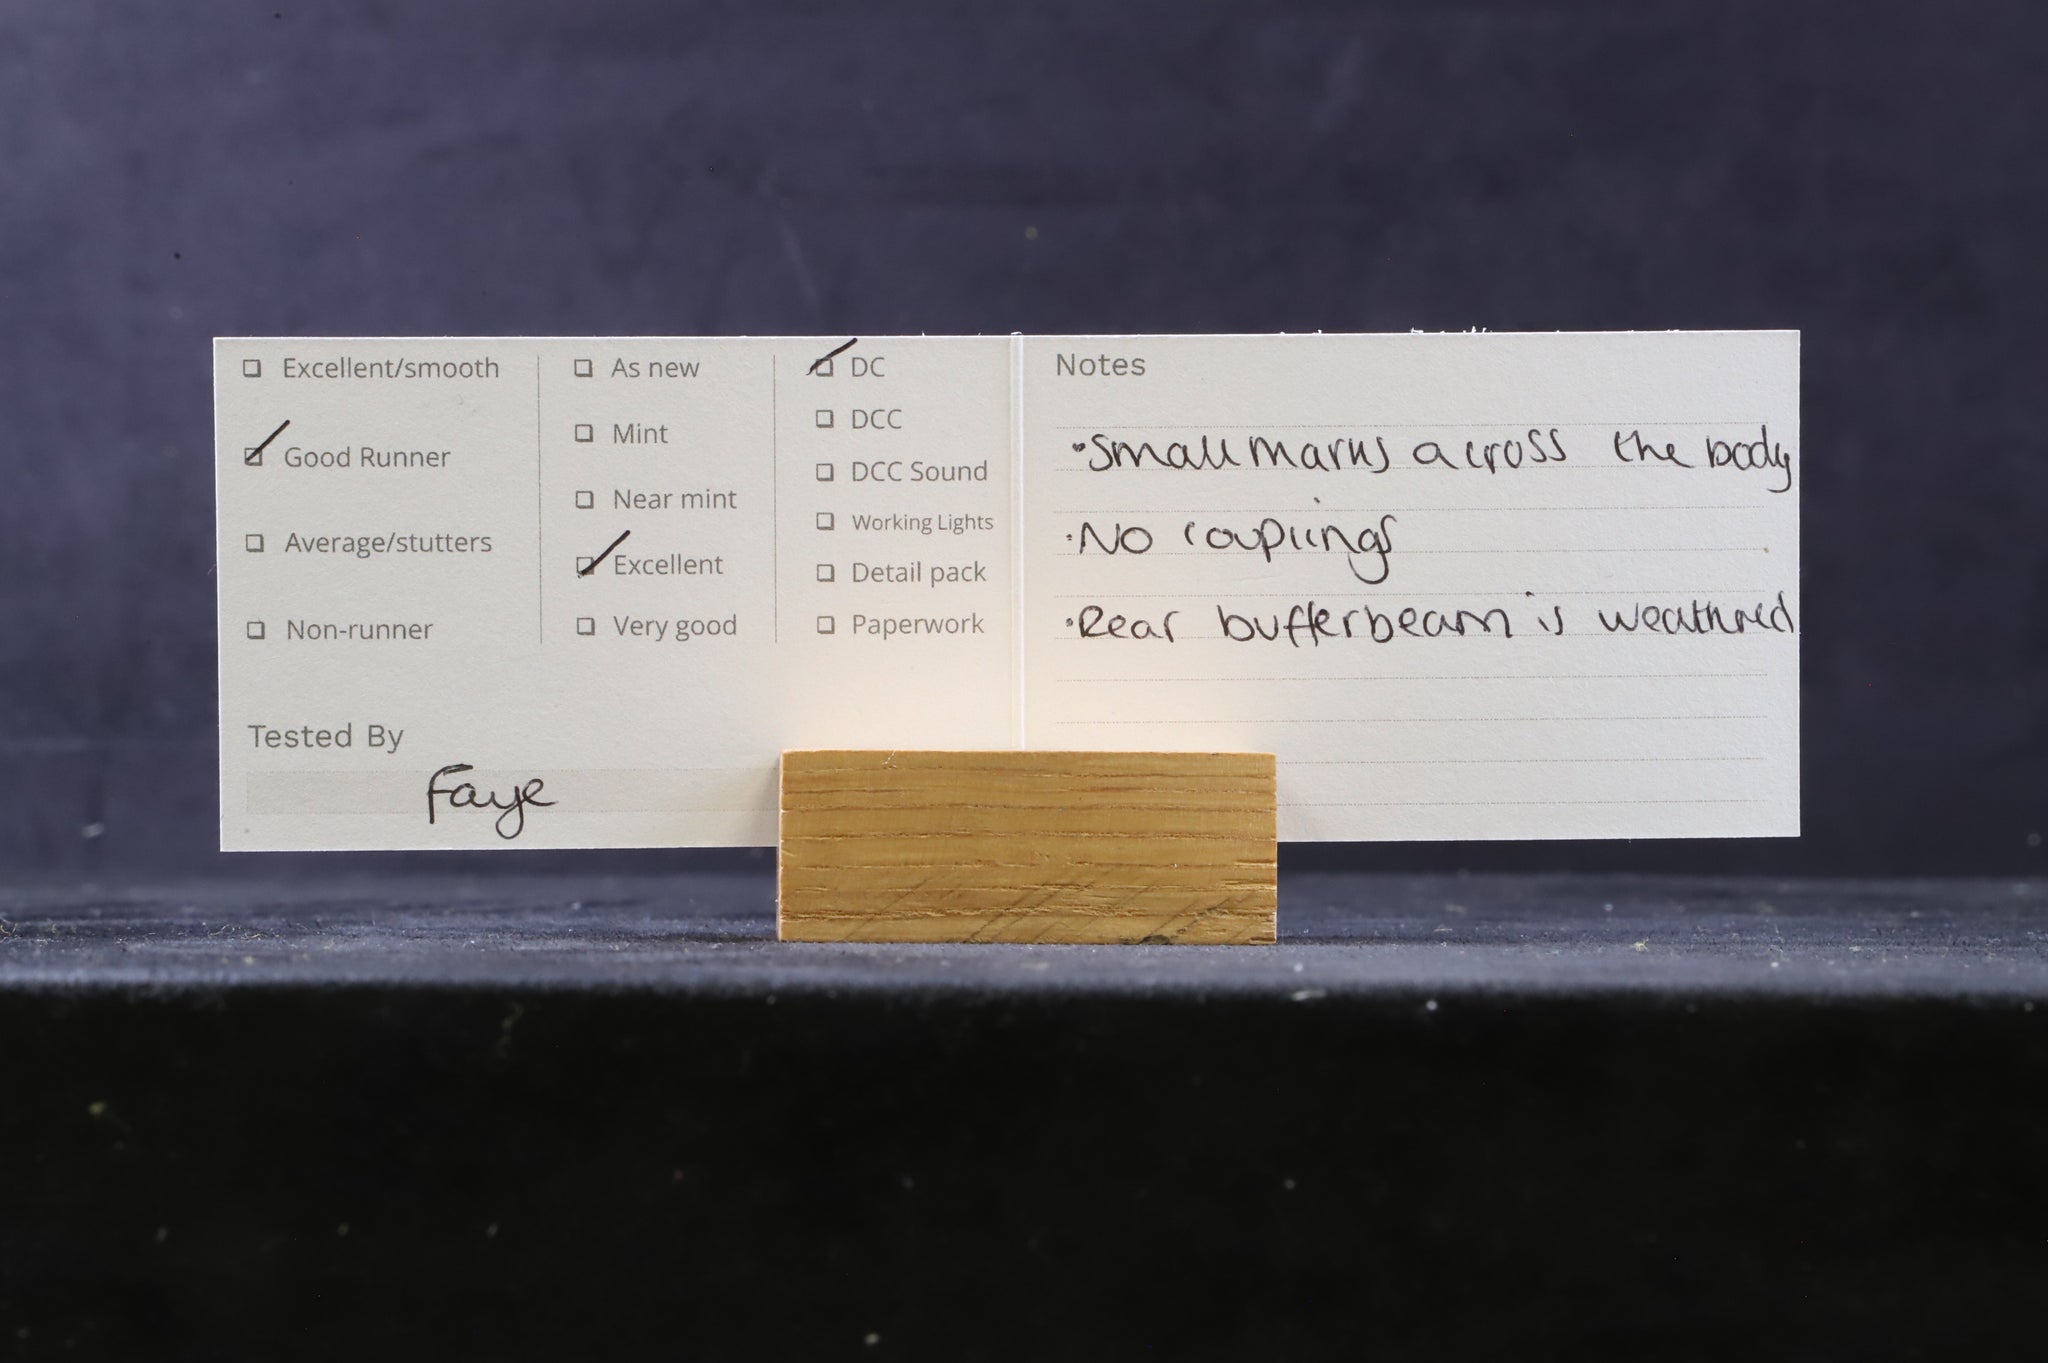 Excellent/smooth
Good Runner
Average/stutters
Non-runner
As new
Mint
Near mint
Excellent
Very good
DC
DCC
DCC Sound
Working Lights
Detail pack
Paperwork
Tested By
Faye
Notes
•Small marks across the body
•No couplings
•Rear bufferbeam is weathred